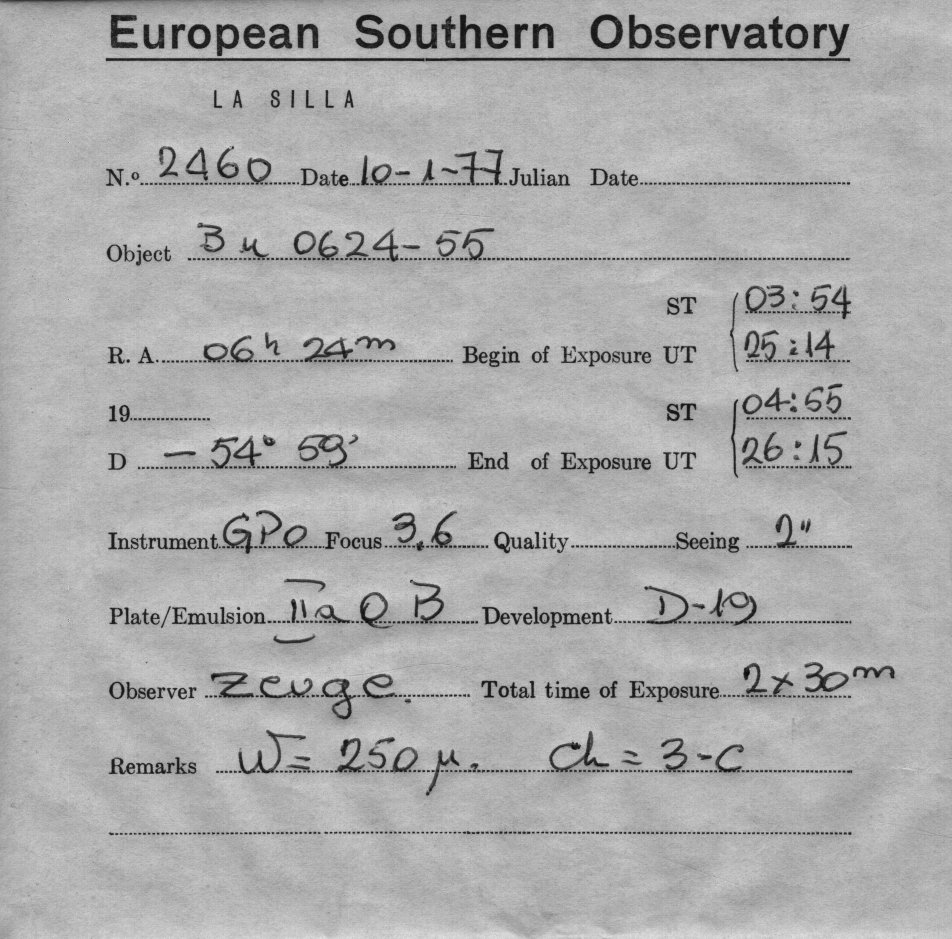 European Southern Observatory
LA SILLA
N.º 2460 Date 10-1-77 Julian Date
Object Bu 0624-55
ST 03:54
R. A. 06h 24m Begin of Exposure UT 25:14
19 ST 04:55
D - 54° 59' End of Exposure UT 26:15
Instrument GPO Focus 3.6 Quality Seeing 2"
Plate/Emulsion IIaOB Development D-19
Observer Zeuge. Total time of Exposure 2x30m
Remarks W= 250 μ. Ch = 3-C